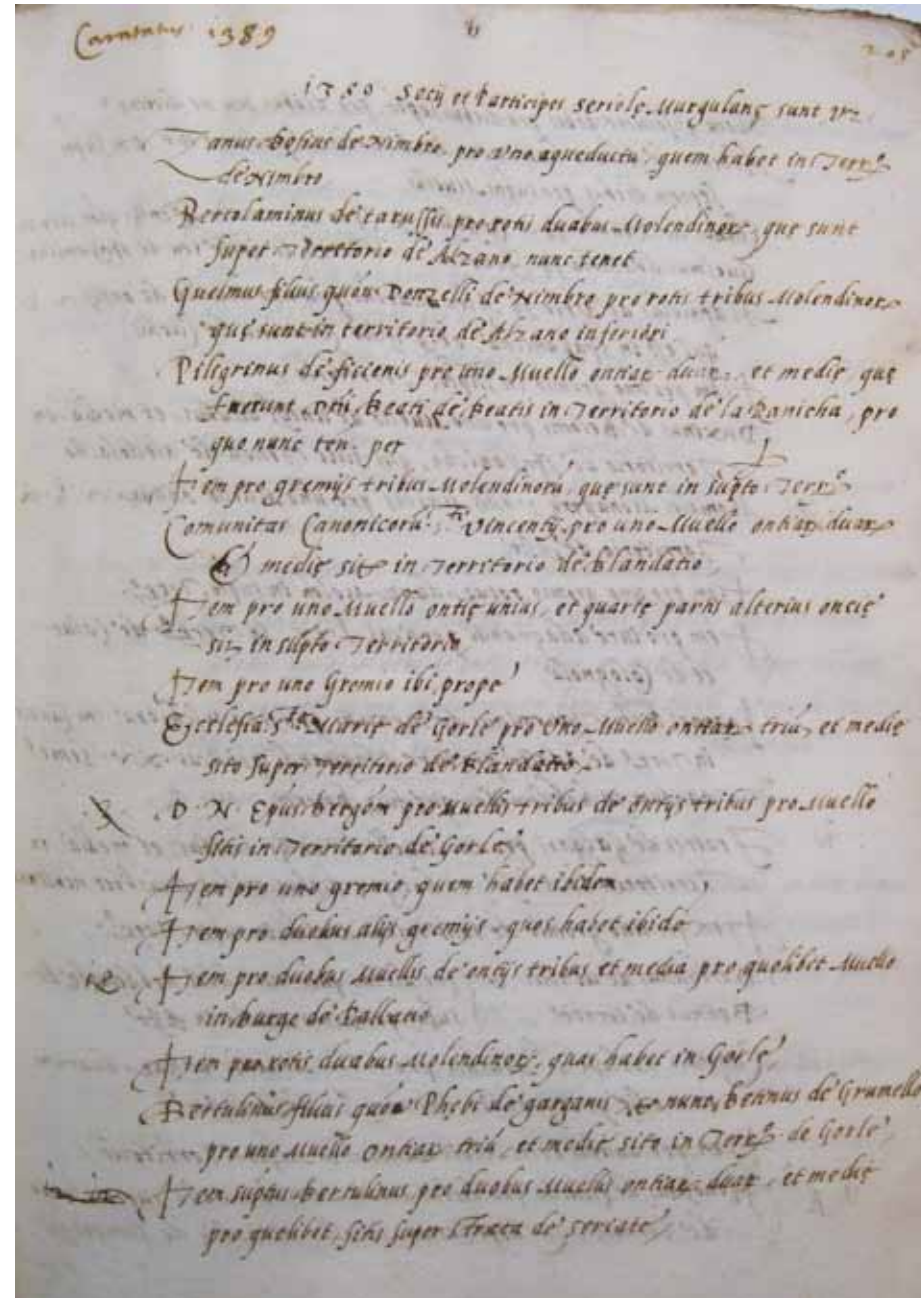 Caratatus 1389
6
205
1389 Socij et Participes seriolę Murgulanę sunt Vr=
Tanus Bosius de Nimbro pro uno aqueductu, quem habet in Terr.º
de Nimbro
Bertolaminus de tarussis pro rotis duabus Molendinorz, quę sunt
super Territorio de Alzano, nunc tenet
Guelmus filius quon Donzelli de Nimbro pro rotis tribus Molendinorz
quę sunt in territorio de Alzano inferiori
Pilegrinus de ficienis pro uno Muello ontiar duar, et medię, quę
fuerunt Beati de Beatis in Territorio de la Ranicha, pro
quo nunc ten: per
Item pro gremijs tribus Molendinorũ, quę sunt in supto Terr.º
Comunitas Canonicorũ S.ti Vincentij pro uno Muello ontiar duar
et medię sit in Territorio de Blandatio
Item pro uno Muello ontię unius, et quartę partis alterius oncię
sit in supto Territorio
Item pro uno Gremio ibi prope
Ecclesia S.tę Marię de Gorle pro Uno Muello ontiar triũ, et medię
sito super Territorio de Blandatio
D. N. Epus Bergom pro Muellis tribus de ontijs tribus pro Muello
sitis in Territorio de Gorle
Item pro uno gremio, quem habet ibidem
Item pro duobus alijs gremijs quos habet ibidẽ
Item pro duobus Muellis de oncijs tribus et media pro quolibet Muello
in burgo de Pallano
Item pro rotis duabus Molendinorz, quas habet in Gorle
Bertulinus filius quon Phębi de garganis et nunc Bennus de Grumello
pro uno Muello ontiar triũ, et medię sito in Terr.º de Gorle
Item suptus Bertulinus pro duobus Muellis ontiar duar, et medię
pro quolibet, sitis super strata de seriate